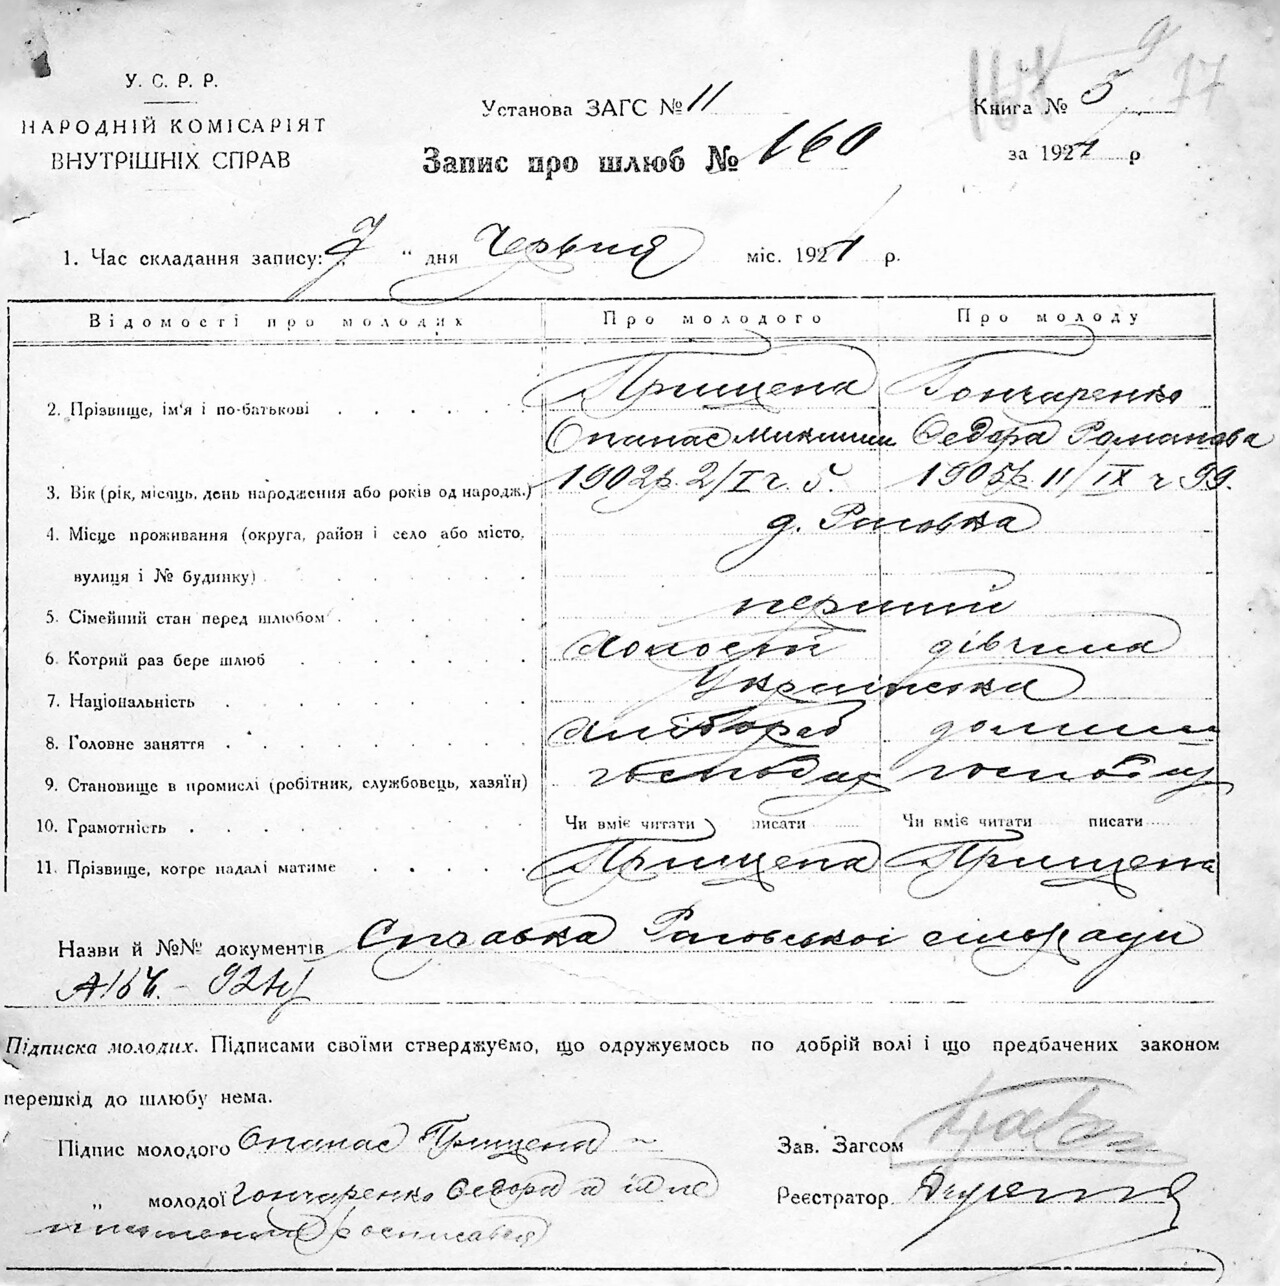 164 9 17
У. С. Р. Р.
НАРОДНІЙ КОМІСАРІЯТ
ВНУТРІШНІХ СПРАВ
Установа ЗАГС № 11
Книга № 5
Запис про шлюб № 160
за 192 р
1. Час складання запису: " дня Червня міс. 192 р.
Відомості про молодих Про молодого Про молоду
2. Прізвище, ім'я і по-батькові Прищепа Гончаренко
Опанас Федора Романова
3. Вік (рік, місяць, день народження або років од народж.) 1902р. 2/I 1905р. 11/IX
4. Місце проживання (округа, район і село або місто, д.
вулиця і № будинку)
5. Сімейний стан перед шлюбом перший
6. Котрий раз бере шлюб холостій дівчина
7. Національність Українська
8. Головне заняття хлібороб
9. Становище в промислі (робітник, службовець, хазяїн)
10. Грамотність Чи вміє читати писати Чи вміє читати писати
11. Прізвище, котре надалі матиме Прищепа Прищепа
Назви й №№ документів Справка сільради
Підписка молодих. Підписами своїми стверджуємо, що одружуємось по добрій волі і що предбачених законом
перешкід до шлюбу нема.
Підпис молодого Опанас Прищепа
Зав. Загсом
„ молодої Гончаренко Федора а їй не
Реєстратор
росписався